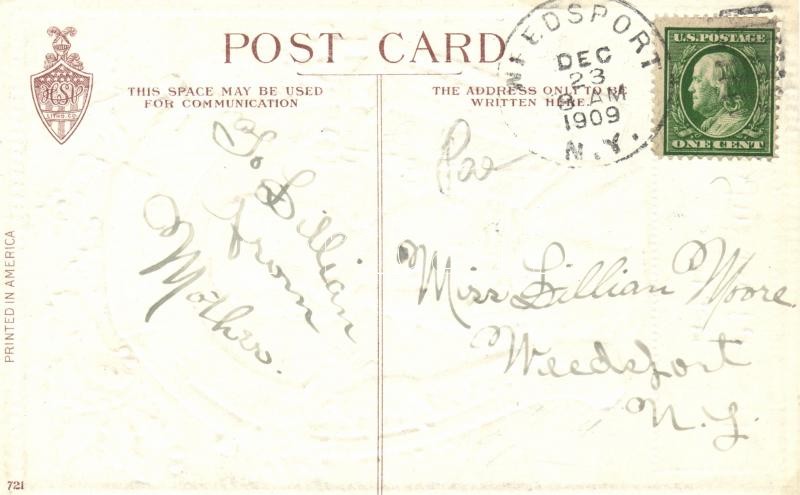 POST CARD
THIS SPACE MAY BE USED
FOR COMMUNICATION
THE ADDRESS ONLY TO BE
WRITTEN HERE.
WEEDSPORT
DEC
23
8 AM
1909
N.Y.
U.S. POSTAGE
ONE CENT
LITHO. CO.
To Lillian
from
Mother.
Miss Lillian Moore
Weedsport
N.Y.
PRINTED IN AMERICA
721